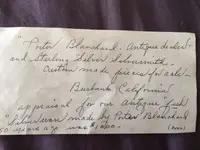 "Porter Blanchard. Antique dealer &
and Sterling Silver Silversmith -
Custom made pieces for sale -
Burbank California
appraisal for our Antique
"Silver made by Porter Blanchard
50 years ago was $1,600.
(over)